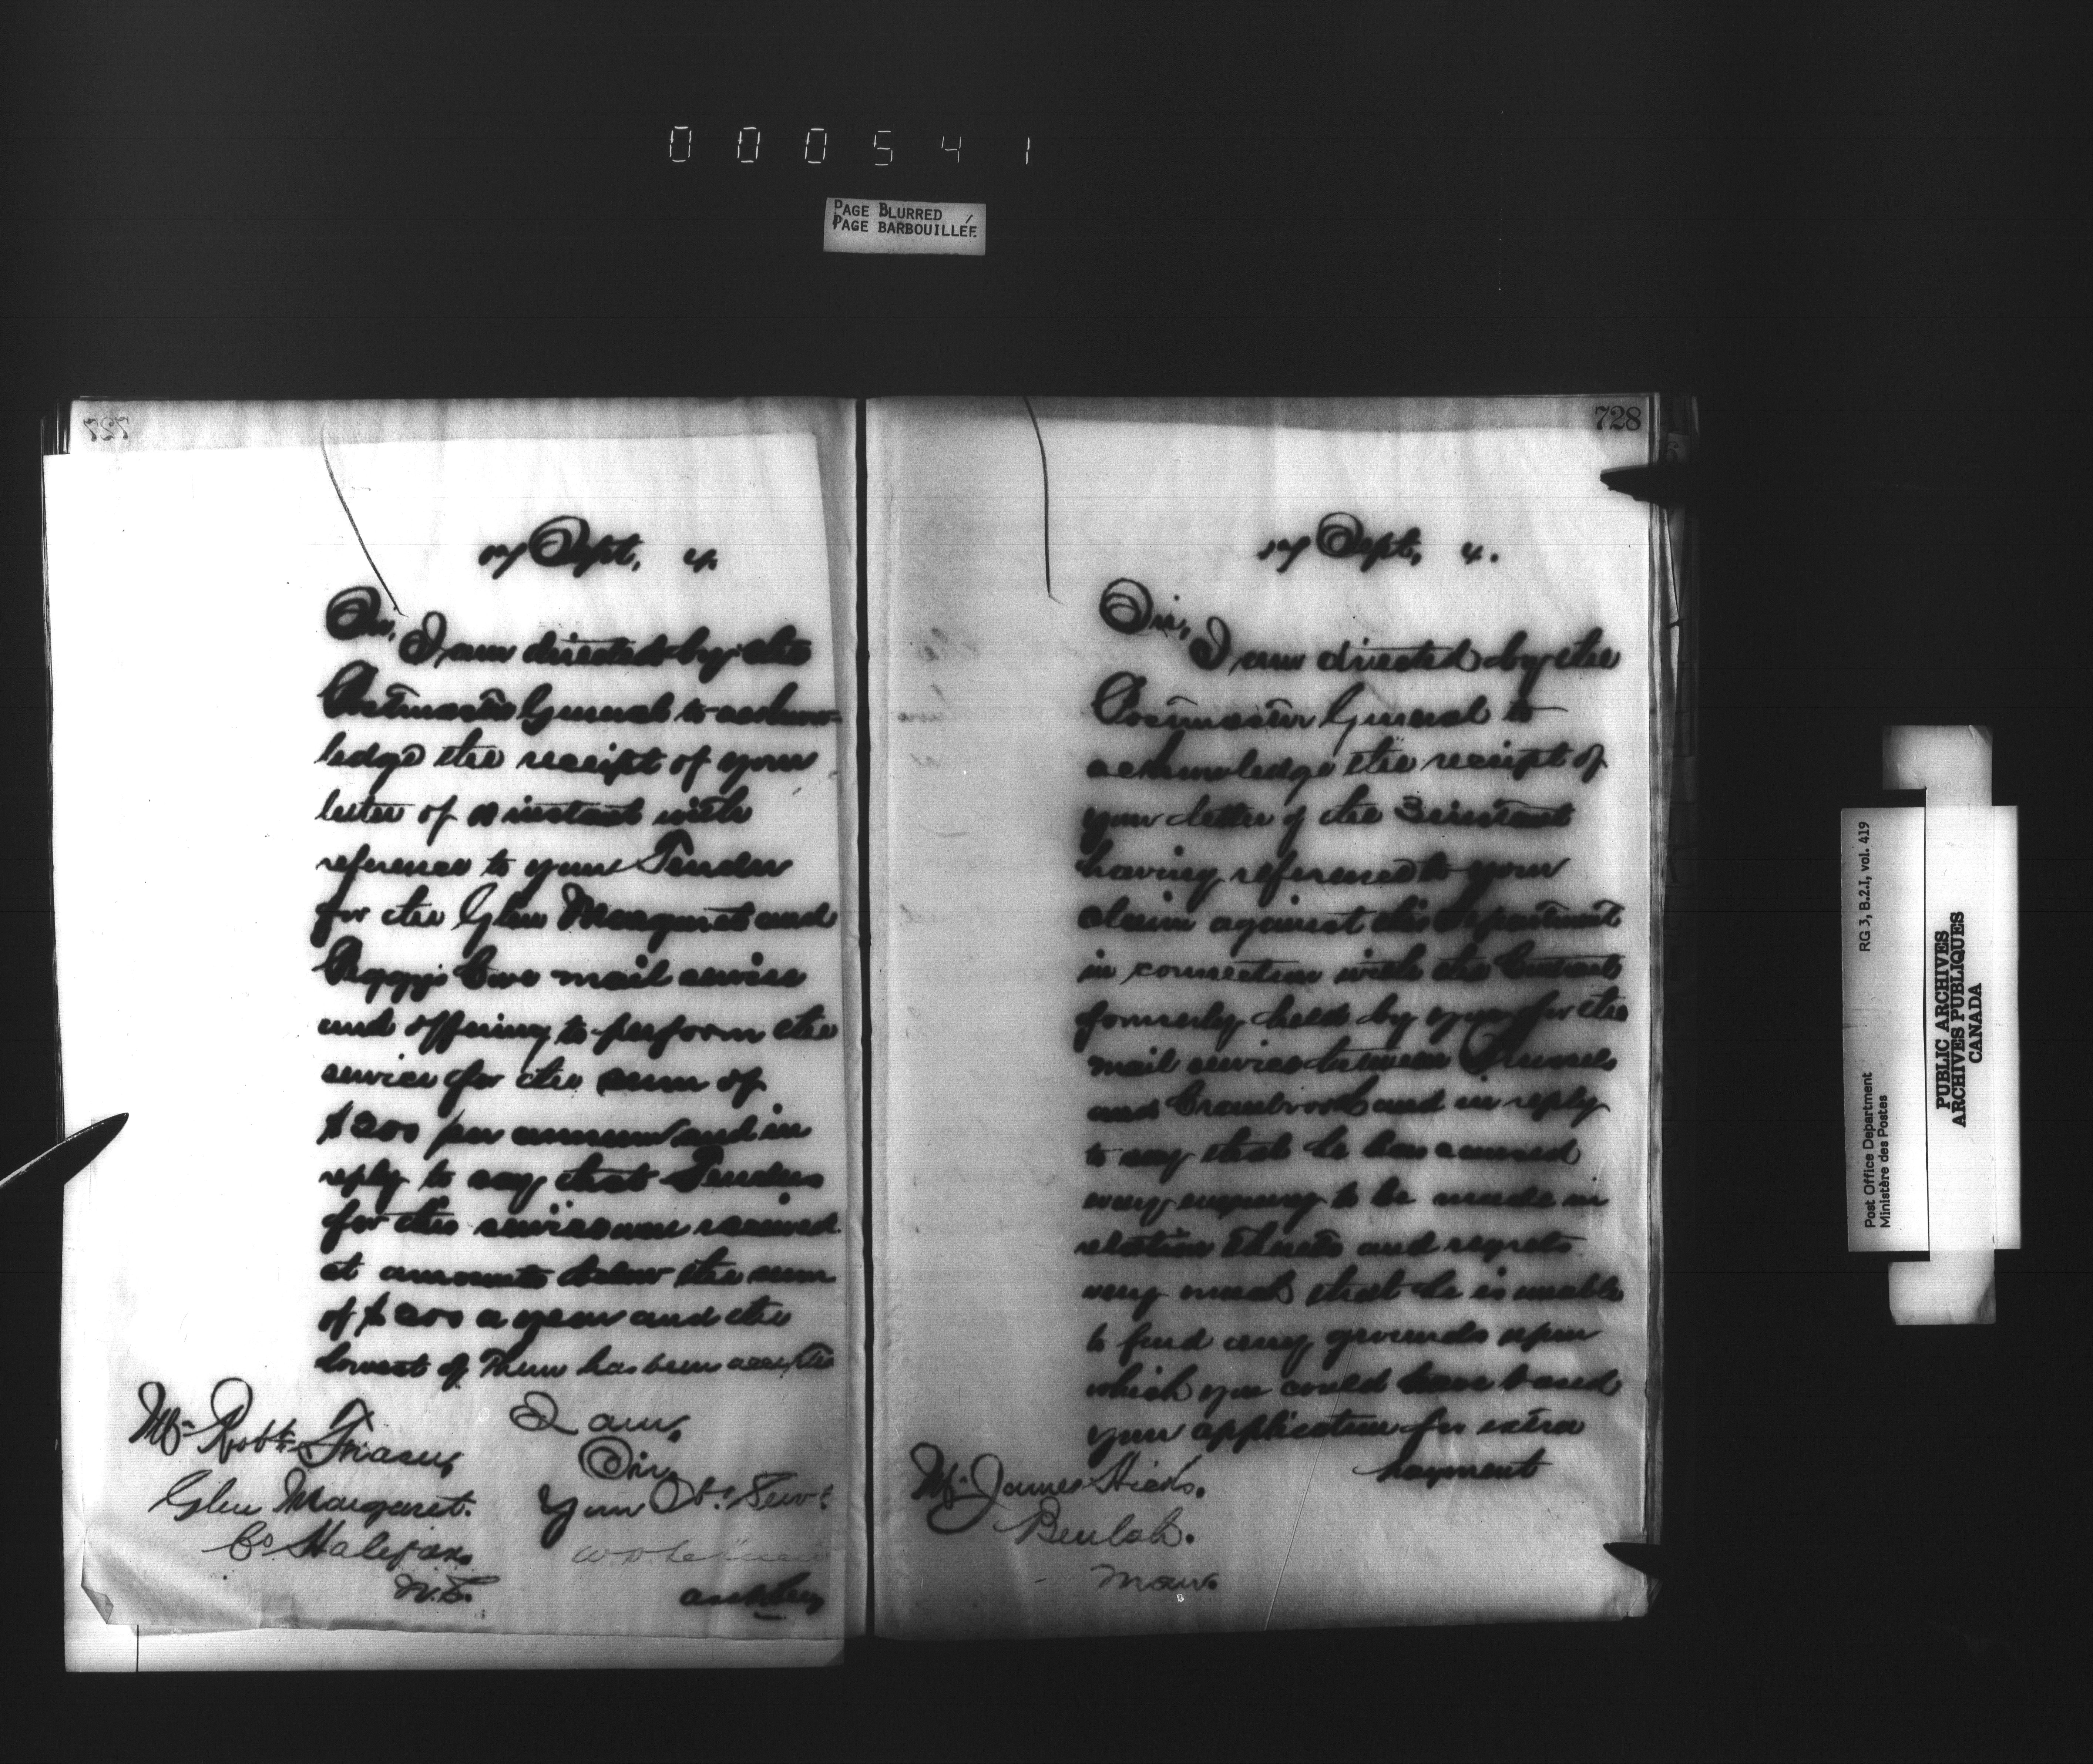 000541
PAGE BLURRED
PAGE BARBOUILLÉE
727
17 Sept. 4.
Sir,
I am directed by the
Postmaster General to acknow-
ledge the receipt of your
letter of instant with
reference to your Tender
for the Glen Margaret and
Peggy's Cove mail service
and offering to perform the
service for the sum of
$200 per annum and in
reply to say that Tenders
for this service were received
at amounts below the sum
of $200 a year and the
lowest of them has been accepted
I am,
Sir,
Your Obt. Servt.
Mr. Robt. Fraser,
Glen Margaret.
Co Halifax.
N.S.
728
17 Sept. 4.
Sir,
I am directed by the
Postmaster General to
acknowledge the receipt of
your letter of the 3 instant
having reference to your
claim against this Department
in connection with the Contract
formerly held by you for the
mail service between
and Cranbrook and in reply
to say that he has caused
enquiry to be made in
relation thereto and regrets
very much that he is unable
to find any grounds upon
which you could have based
your application for extra
payment
Mr. James Hicks.
Beulah.
Man.
Post Office Department
Ministère des Postes
RG 3, B.2.I, vol. 419
PUBLIC ARCHIVES
ARCHIVES PUBLIQUES
CANADA